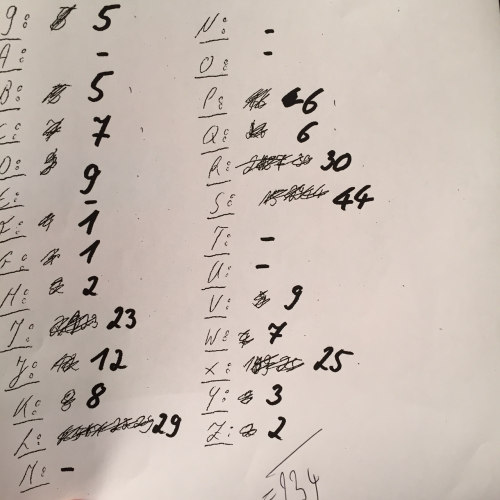 9: 5
A: -
B: 5
C: 7
D: 9
E: -
F: 1
G: 1
H: 2
I: 23
J: 12
K: 8
L: 29
M: -
N: -
O: -
P: 6
Q: 6
R: 30
S: 44
T: -
U: -
V: 9
W: 7
X: 25
Y: 3
Z: 2
=234